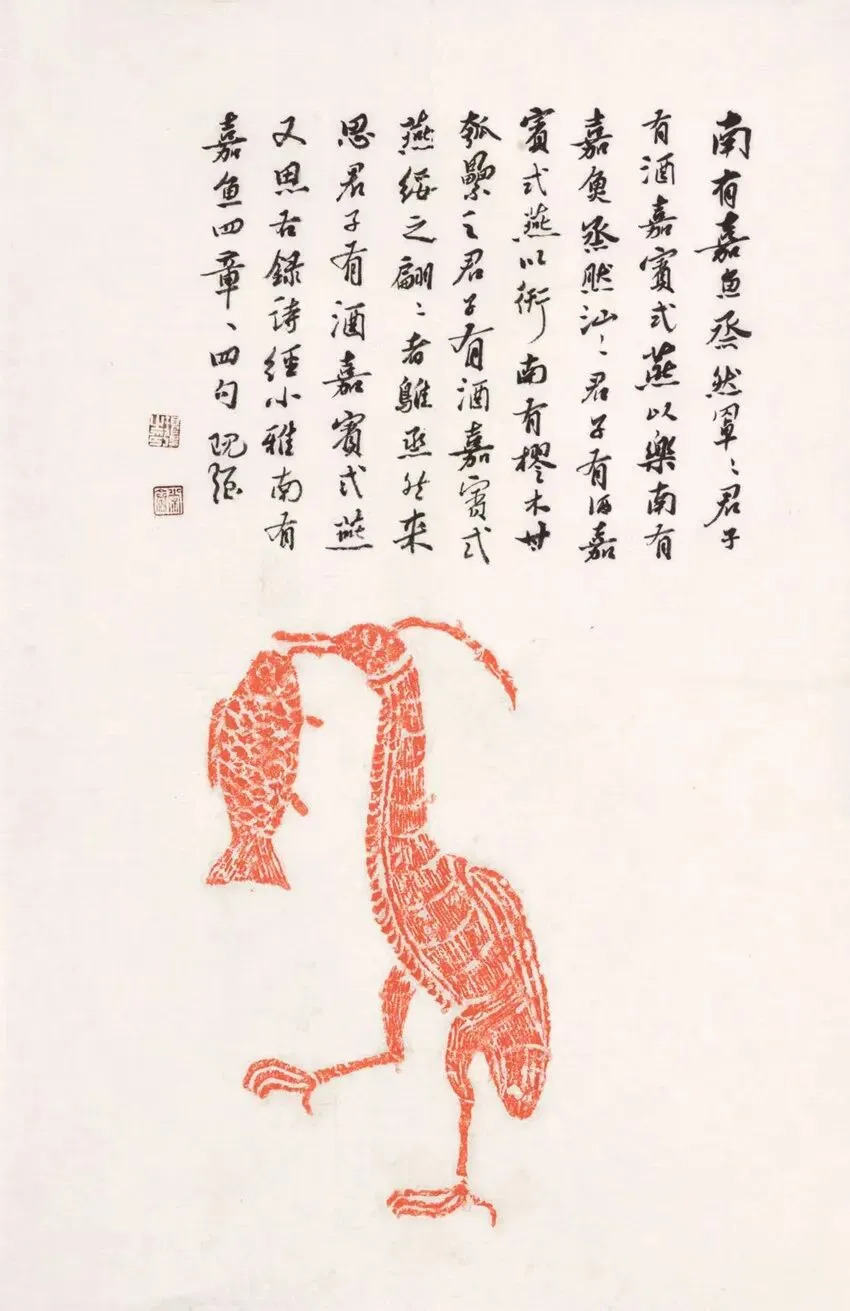 南有嘉魚烝然罩〻君子
有酒嘉賓式燕以樂南有
嘉魚烝然汕〻君子有酒嘉
賓式燕以衎南有樛木甘
瓠纍之君子有酒嘉賓式
燕綏之翩〻者鵻烝然來
思君子有酒嘉賓式燕
又思右錄詩經小雅南有
嘉魚四章〻四句